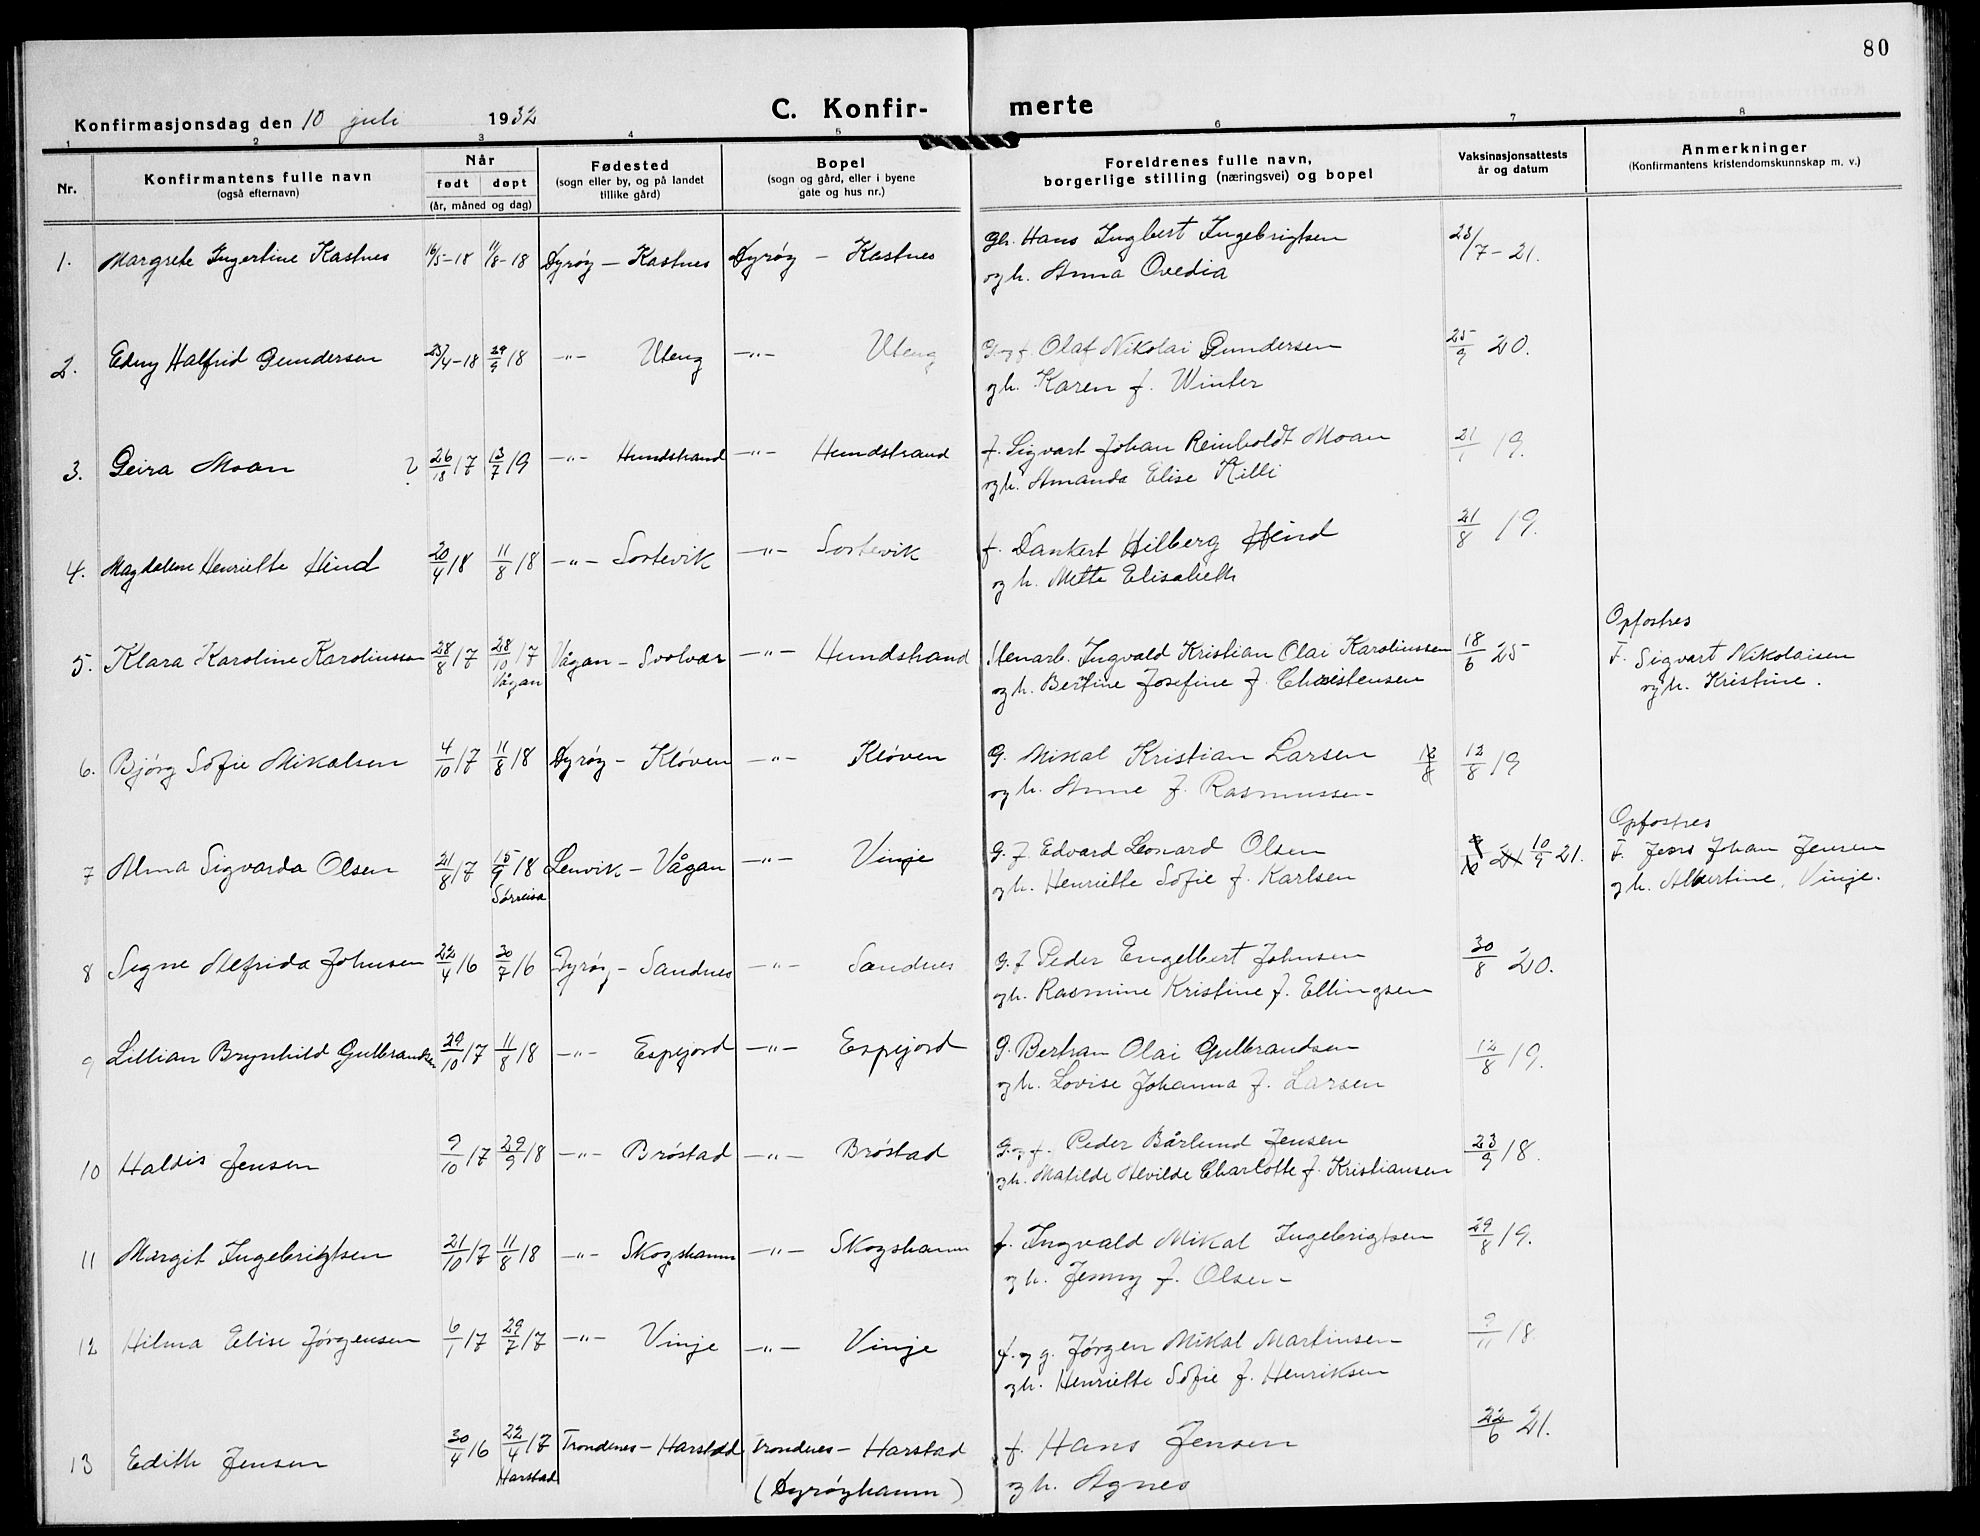 80
Konfirmasjonsdag den 10 juli 1932 C. Konfir- merte
1 2 3 4 5 6 7 8
Nr. Konfirmantens fulle navn (også efternavn) Når født døpt (år, måned og dag) Fødested (sogn eller by, og på landet tillike gård) Bopel (sogn og gård, eller i byene gate og hus nr.) Foreldrenes fulle navn, borgerlige stilling (næringsvei) og bopel Vaksinasjonsattests år og datum Anmerkninger (Konfirmantens kristendomskunnskap m. v.)
1. Margrete Ingertine Kastnes 16/5-18 11/8-18 Dyrøy - Kastnes Dyrøy - Kastnes Gbr. Hans Ingbert Ingebrigtsen 23/7-21.
og h. Anna Ovedia
2. Edny Halfrid Gundersen 23/4-18 29/9 18 -"- Uteng -"- Uteng G og f. Olaf Nikolai Gundersen 25/9 20.
og h. Karen f. Winter
3. Geira Moan ? 26/18 17 13/7 19 -"- Hundstrand -"- Hundstrand f. Sigvart Johan Reinholdt Moan 21/1 19.
og h. Amanda Elise Killi
4. Magdalene Henriette Hind 20/4 18 11/8 18 -"- Sortevik -"- Sortevik f. Dankert Hilberg Hind 21/8 19.
og h. Mette Elisabeth
5. Klara Karoline Karolinssen 28/8 17 28/10 17 Vågan Vågan - Svolvær -"- Hundstrand Stenarb. Ingvald Kristian Olai Karolinssen 18/6 25 Opfostres
og h. Bertine Josefine f. Christensen F. Sigvart Nikolaisen
og h. Kristine.
6. Bjørg Sofie Mikalsen 4/10 17 11/8 18 Dyrøy - Kløven -"- Kløven G. Mikal Kristian Larsen 12/8 12/8 19
og h. Anne f. Rasmussen
7 Alma Sigvarda Olsen 21/8 17 15/9 18 Sørreisa Lenvik - Vågan -"- Vinje G. f Edvard Leonard Olsen 10/9 21. Opfostres
og h. Henriette Sofie f. Karlsen F. Jens Johan Jensen
og h. Albertine, Vinje.
8 Signe Alfrida Johnsen 22/4 16 30/7 16 Dyrøy - Sandnes -"- Sandnes G. f Peder Engelbert Johnsen 30/8 20.
og h. Rasmine Kristine f. Ellingsen
9 Lillian Brynhild Gulbrandsen 29/10 17 11/8 18 -"- Espejord -"- Espejord G. Bertran Olai Gulbrandsen 12/8 19.
og h. Lovise Johanna f. Larsen
10 Haldis Jensen 9/10 17 29/9 18 -"- Brøstad -"- Brøstad G. og f. Peder Bårlund Jensen 23/9 18.
og h. Matilde Alvilde Charlotte f. Kristiansen
11 Margit Ingebrigtsen 21/10 17 11/8 18 -"- Skogshamn -"- Skogshamn f. Ingvald Mikal Ingebrigtsen 29/8 19.
og h. Jenny f. Olsen
12 Hilma Elise Jørgensen 6/1 17 29/7 17 -"- Vinje -"- Vinje f. og g. Jørgen Mikal Martinsen 9/11 18
og h. Henriette Sofie f. Henriksen
13 Edith Jensen 30/4 16 22/4 17 Harstad Trondenes - Harstad Trondenes - Harstad f. Hans Jensen 22/6 21.
(Dyrøyhamn) og h. Agnes